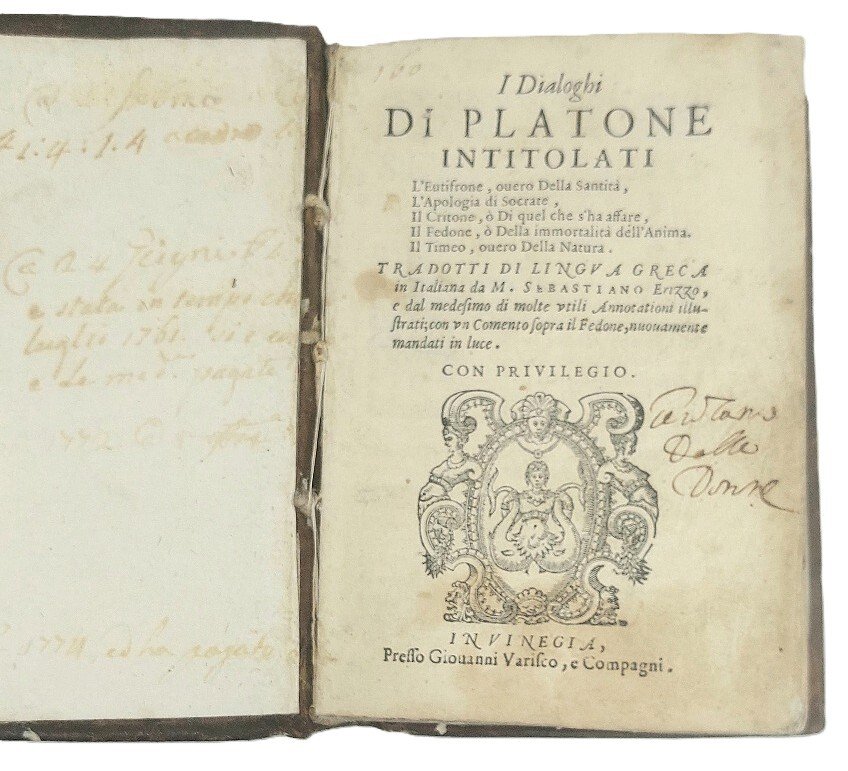 1.4.1.4
e stata in
luglio 1761.
e
1774 ed ha pagato
160
I Dialoghi
Di PLATONE
INTITOLATI
L'Eutifrone, ouero Della Santità,
L'Apologia di Socrate,
Il Critone, ò Di quel che s'ha affare,
Il Fedone, ò Della immortalità dell'Anima.
Il Timeo, ouero Della Natura.
TRADOTTI DI LINGVA GRECA
in Italiana da M. SEBASTIANO Erizzo,
e dal medesimo di molte vtili Annotationi illu-
strati; con vn Comento sopra il Fedone, nuouamente
mandati in luce.
CON PRIVILEGIO.
Delle
Donne
IN VINEGIA,
Presso Giouanni Varisco, e Compagni.